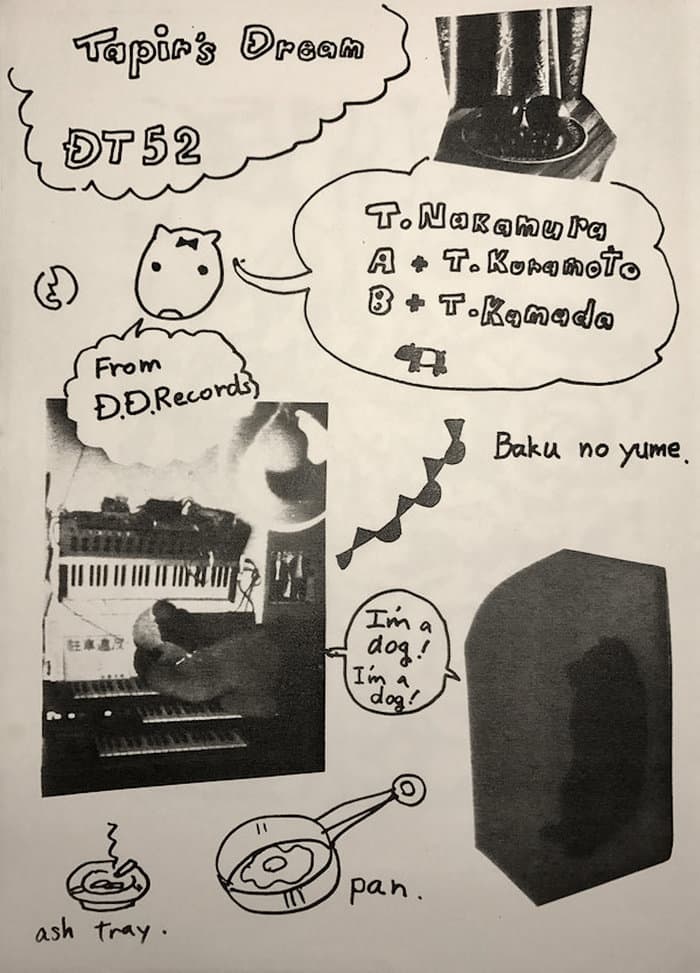 Tapir's Dream
DT52
T. Nakamura
A + T. Kuramoto
B + T. Kamada
From
D.D.Records
Baku no yume.
I'm a
dog!
I'm a
dog!
pan.
ash tray.